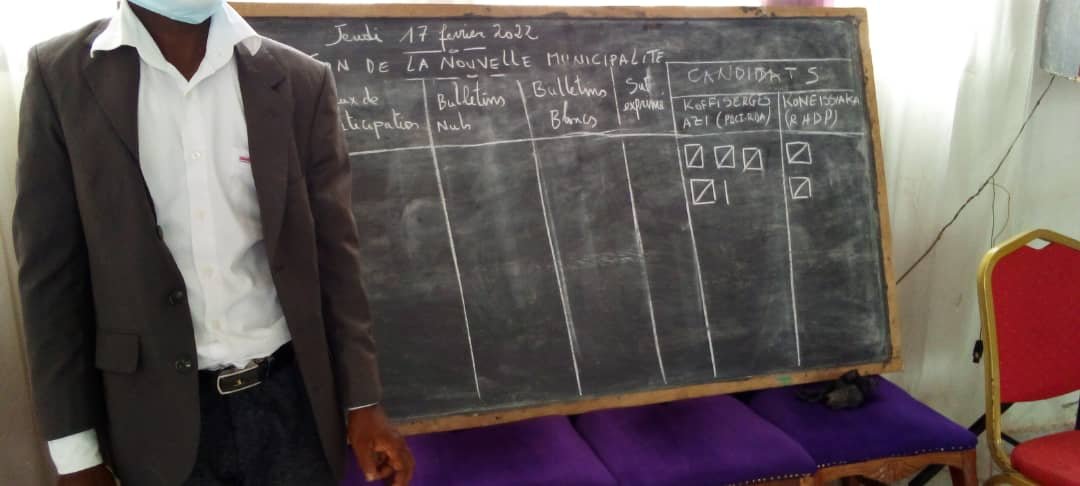 Jeudi 17 février 2022
ON DE LA NOUVELLE MUNICIPALITE
ux de
ticipation
Bulletins
Nuls
Bulletins
Blancs
Suf
exprimé
CANDIDATS
KOFFI SERGES
AZI (PDCI-RDA)
KONE ISSIAKA
(RHDP)